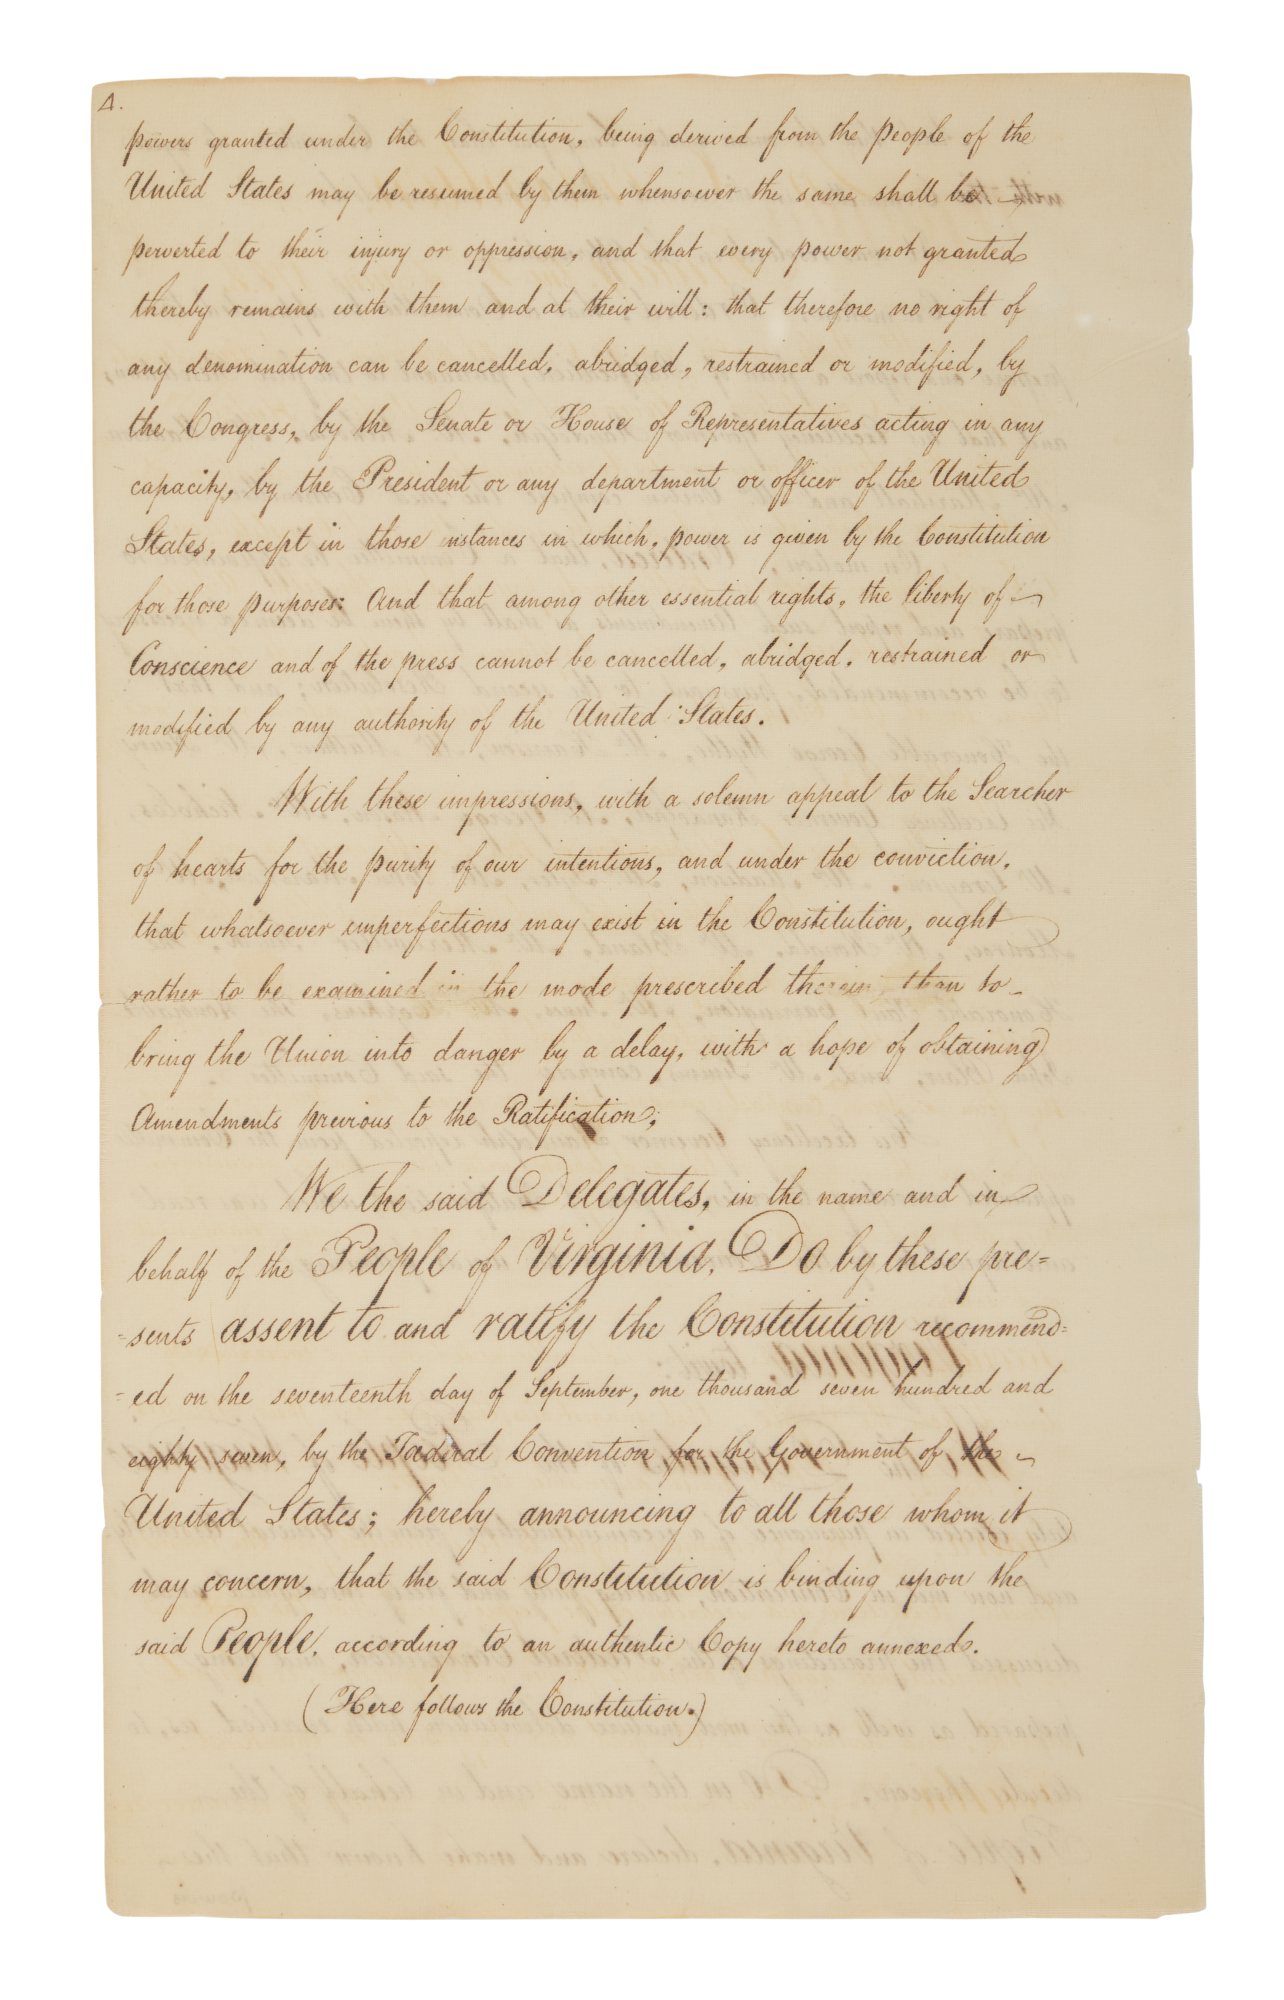 4.
powers granted under the Constitution, being derived from the people of the
United States may be resumed by them whensoever the same shall be
perverted to their injury or oppression, and that every power not granted
thereby remains with them and at their will: that therefore no right of
any denomination can be cancelled, abridged, restrained or modified, by
the Congress, by the Senate or House of Representatives acting in any
capacity, by the President or any department or officer of the United
States, except in those instances in which, power is given by the Constitution
for those purposes: And that among other essential rights, the liberty of
Conscience and of the press cannot be cancelled, abridged, restrained or
modified by any authority of the United States.
With these impressions, with a solemn appeal to the Searcher
of hearts for the purity of our intentions, and under the conviction,
that whatsoever imperfections may exist in the Constitution, ought
rather to be examined in the mode prescribed therein, than to
bring the Union into danger by a delay, with a hope of obtaining
Amendments previous to the Ratification;
We the said Delegates, in the name and in
behalf of the People of Virginia, Do by these pre=
=sents assent to and ratify the Constitution recommend=
=ed on the seventeenth day of September, one thousand seven hundred and
eighty seven, by the Fœderal Convention for the Government of the
United States; hereby announcing to all those whom it
may concern, that the said Constitution is binding upon the
said People, according to an authentic Copy hereto annexed.
(Here follows the Constitution.)